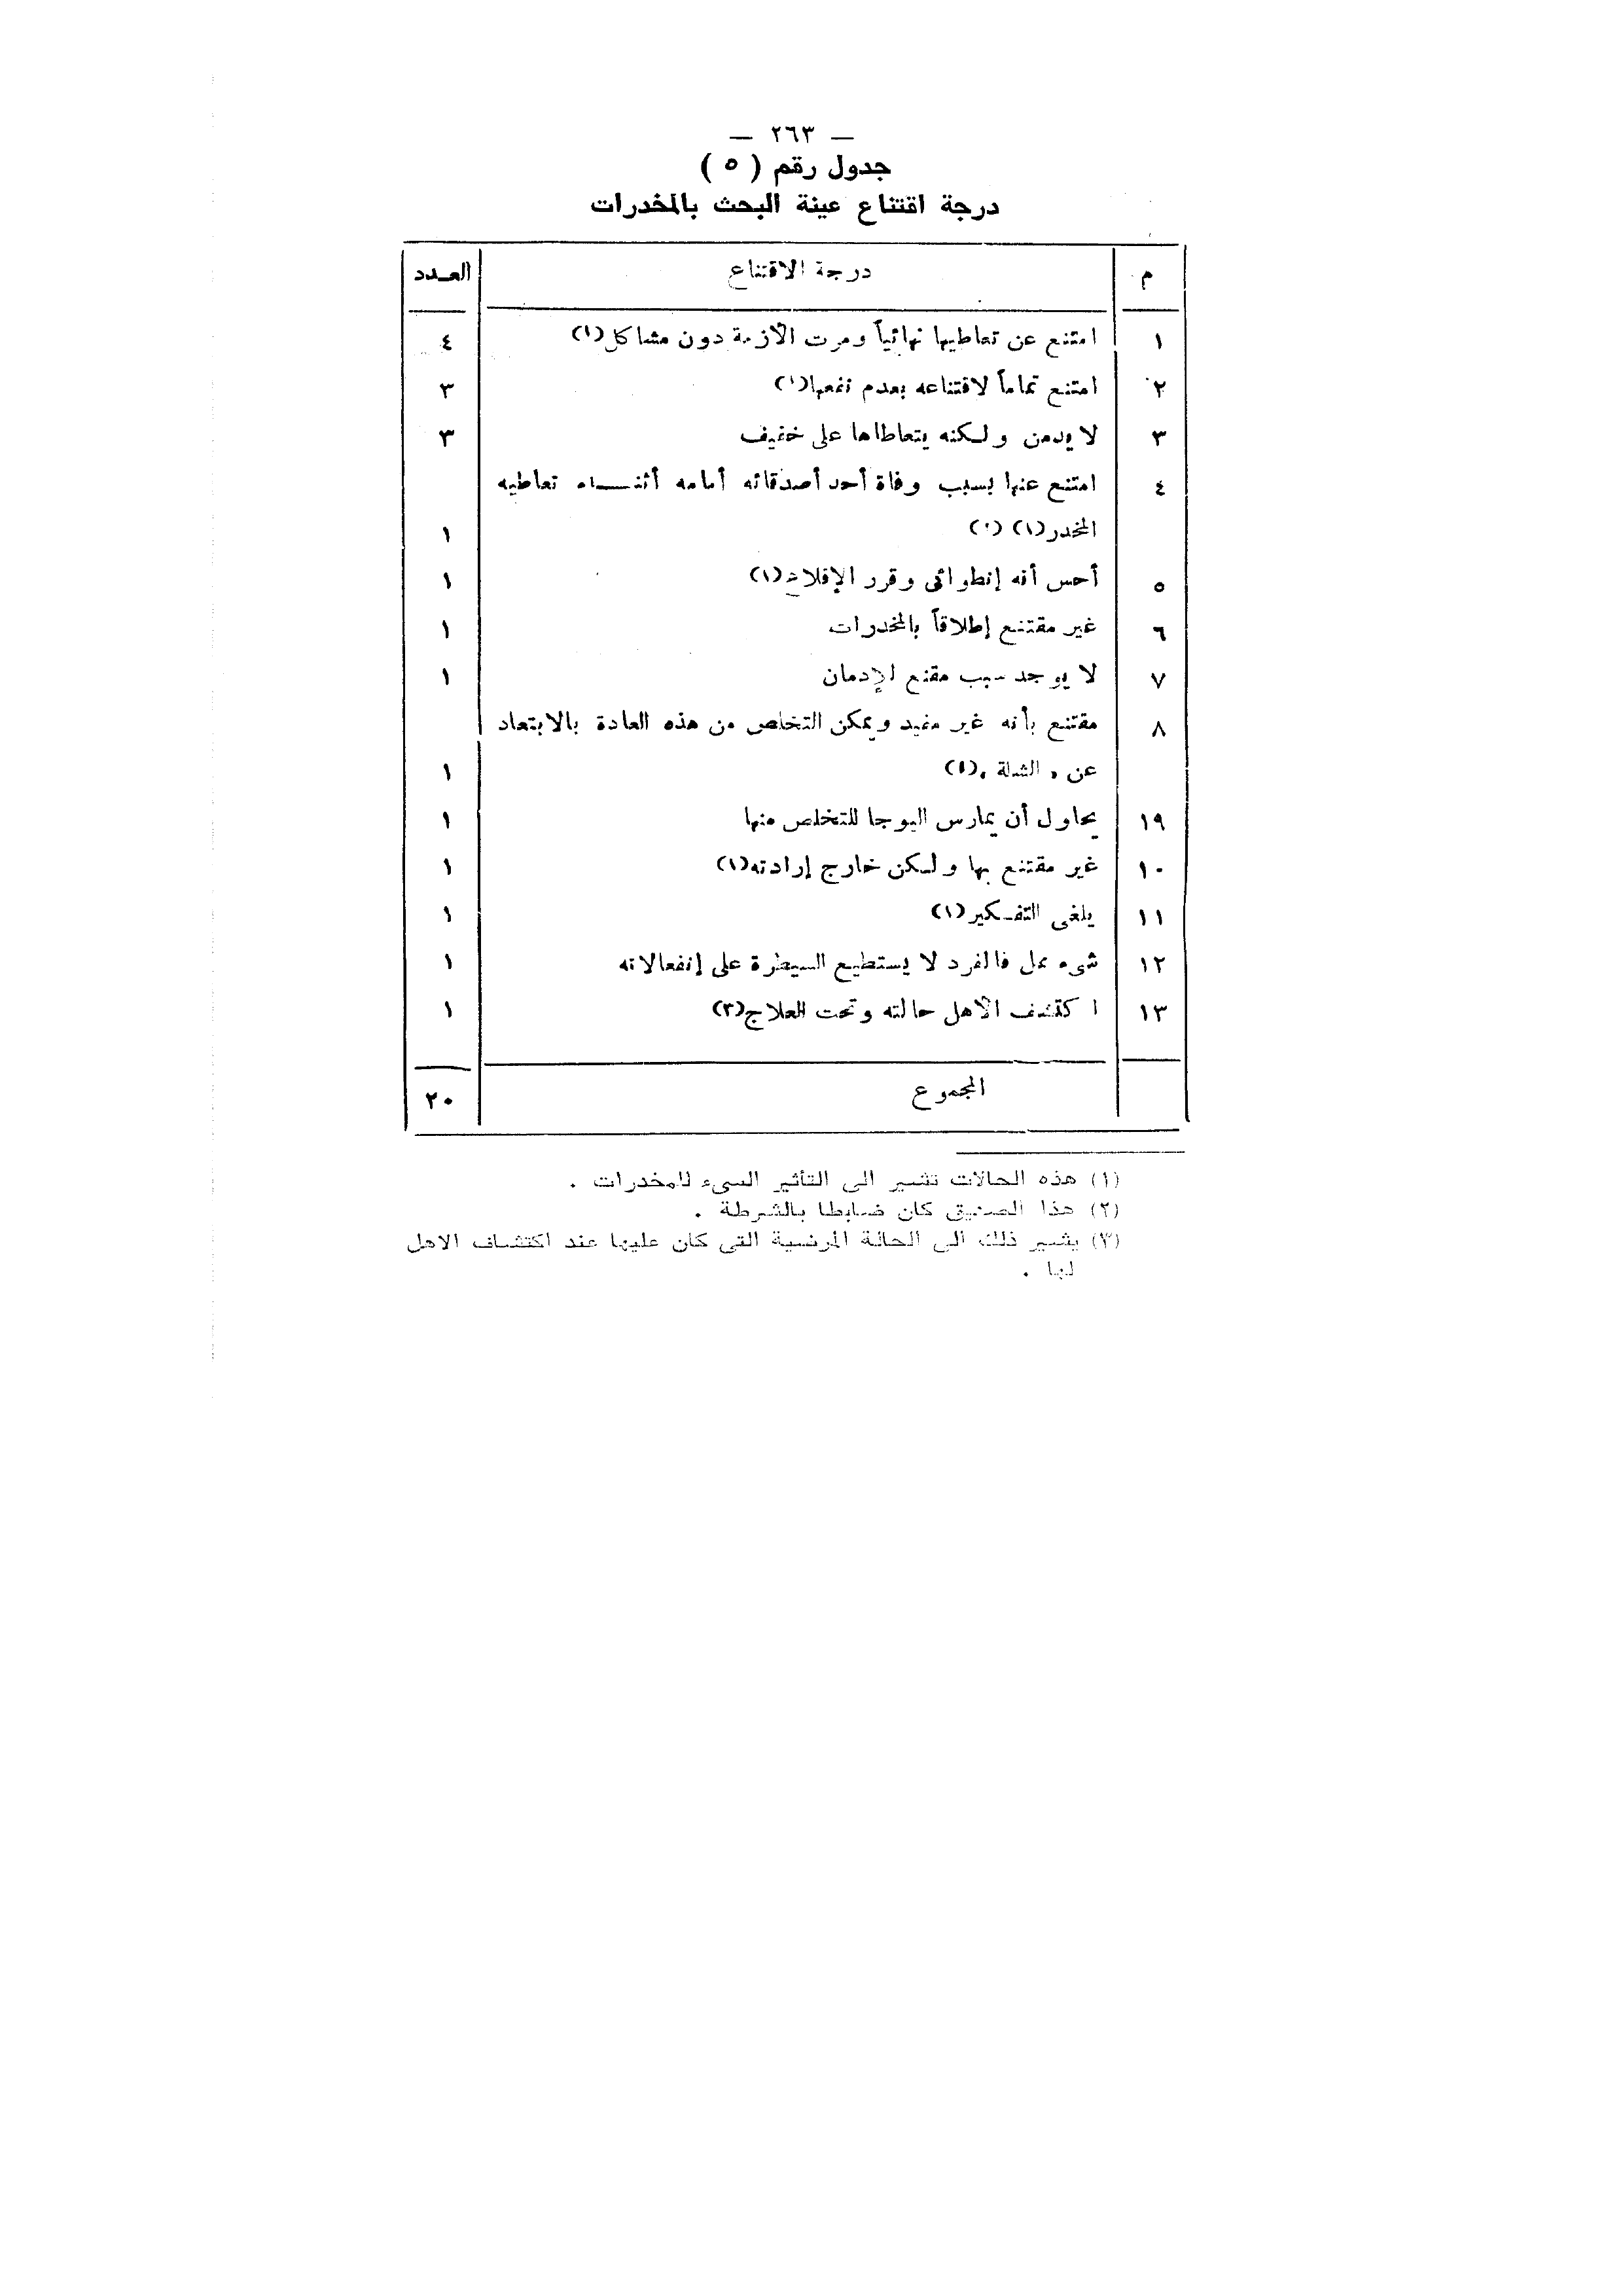 — ٢٦٣ —
جدول رقم ( ٥ )
درجة اقتناع عينة البحث بالمخدرات
م درجة الاقتناع العـدد
١ امتنع عن تعاطيها نهائياً ومرت الأزمة دون مشاكل(١) ٤
٢ امتنع تماماً لاقتناعه بعدم نفعها(١) ٣
٣ لا يدمن ولكنه يتعاطاها على خفيف ٣
٤ امتنع عنها بسبب وفاة أحد أصدقائه أمامه أثنـــاء تعاطيه
المخدر(١) (٢) ١
٥ أحس أنه إنطوائى وقرر الإقلاع(١) ١
٦ غير مقتنع إطلاقاً بالمخدرات ١
٧ لا يوجد سبب مقنع للإدمان ١
٨ مقتنع بأنه غير مفيد ويمكن التخلص من هذه العادة بالابتعاد
عن « الشلة »(١) ١
١٩ يحاول أن يمارس اليوجا للتخلص منها ١
١٠ غير مقتنع بها ولكن خارج إرادته(١) ١
١١ يلغى التفـكير(١) ١
١٢ شىء ممل فالفرد لا يستطيع السيطرة على إنفعالاته ١
١٣ اكتشف الأهل حالته وتحت العلاج(٣) ١
المجموع ٢٠
(١) هذه الحالات تشير الى التأثير السىء للمخدرات .
(٢) هذا الصديق كان ضابطا بالشرطة .
(٣) يشير ذلك الى الحالة المرضية التى كان عليها عند اكتشاف الاهل
لها .